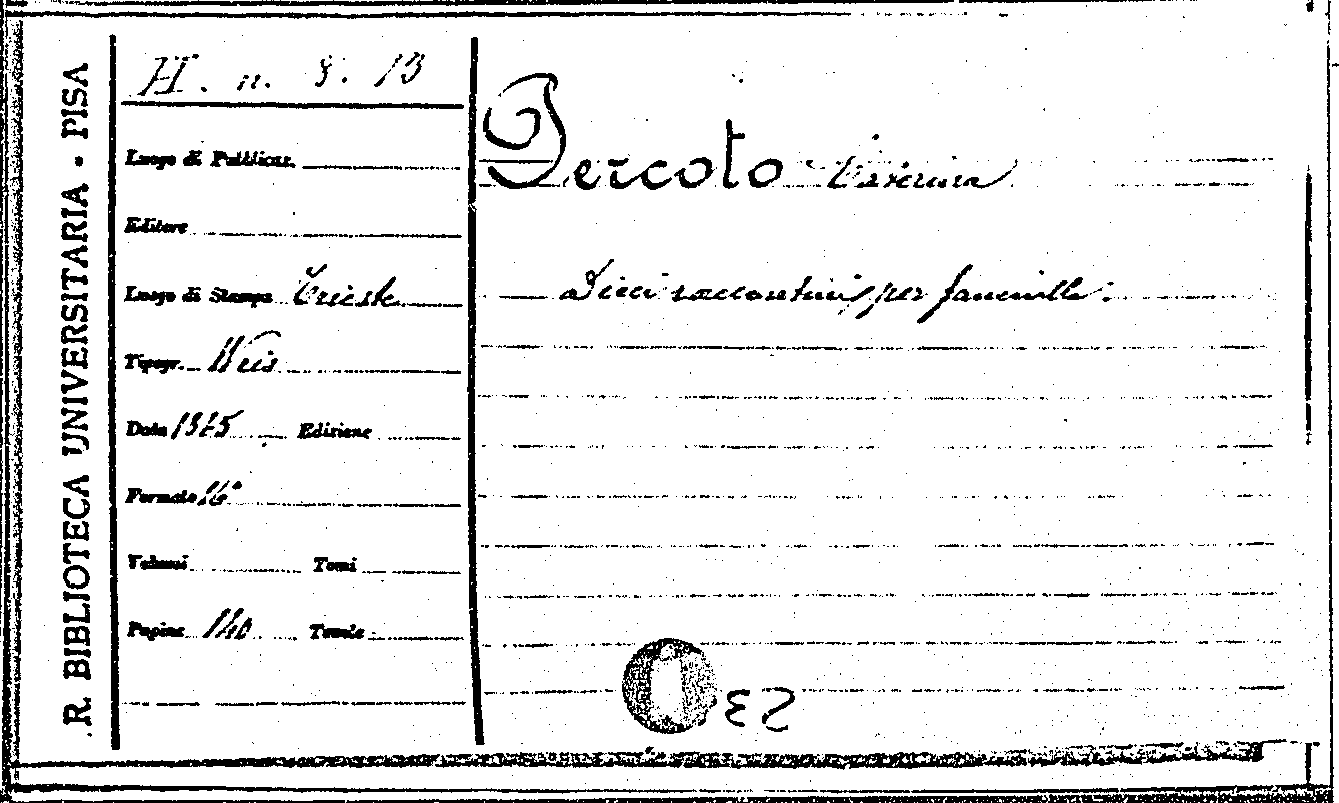 R. BIBLIOTECA UNIVERSITARIA - PISA
H. n. 8. 13
Luogo di Pubblicaz.
Editore
Luogo di Stampa Trieste
Tipogr. Weis
Data
Edizione
Formato 16°
Volumi Tomi
Pagine 140 Tavole
Percoto Caterina
Dieci raccontini per fanciulle.